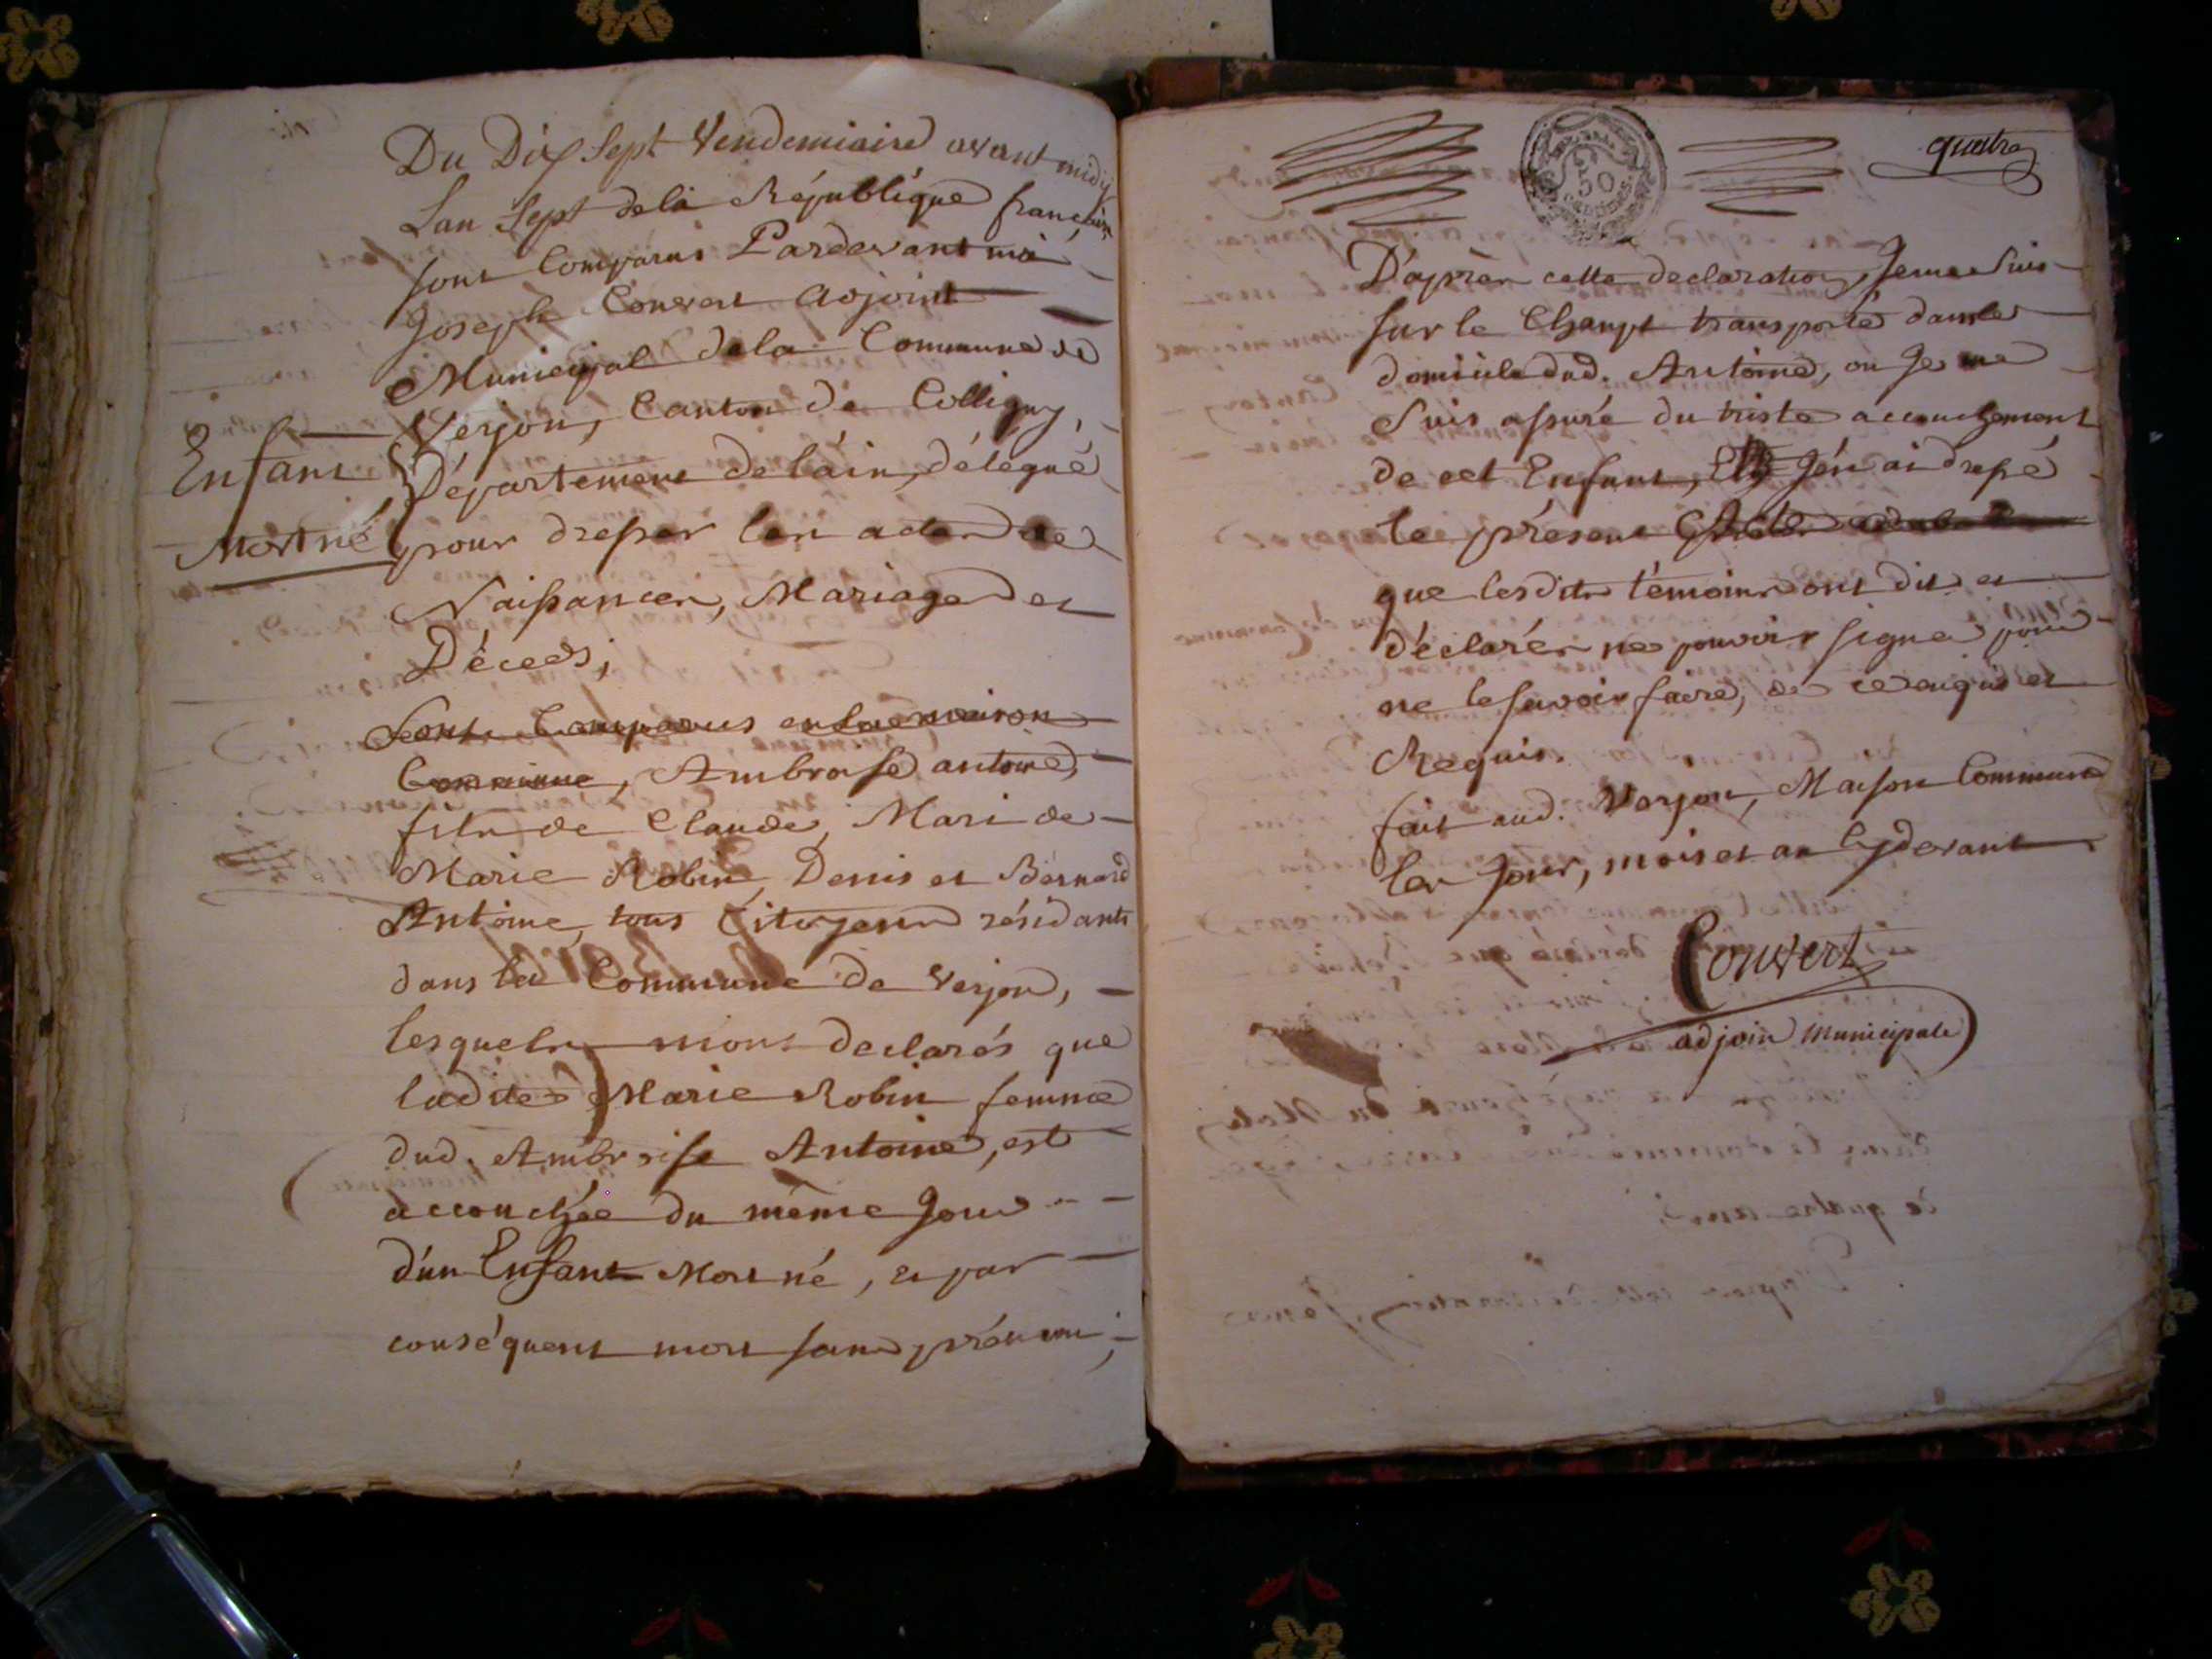 Du Dix Sept Vendemiaire avant midy
Lan Sept dela République française
sont Comparus Pardevant moi
Joseph Convert adjoint
Municipal dela Commune de
Verjon, Canton de Colligny,
Enfant
Département de láin, délegué
Mort né
pour dresser les actes de
Naissances, Mariages et
Décèds;
Sont Comparus en la maison
Commune, Ambroise antoine,
fils de Claude, Mari de
Marie Robin, Denis et Bernard
Antoine, tous Citoyens résidants
dans la Commune de Verjon,
lesquels mont declarés que
ladite Marie Robin femme
dud. Ambroise Antoine, est
accouchée du même Jour
d'un Enfant Mort né, et par
conséquent mort sans prénom;
quatre
50
CENTIMES.
D'après cette declaration, Jeme Suis
sur le Champt transporté dans le
domicile dud. Antoine, ou Je me
Suis assuré du triste accouchement
de cet Enfant, Jén ai dressé
le présent Acte
que lesdits témoins ont dit et
déclarés ne pouvoir signer pour
ne le savoir faire, de ce enquis et
Requis.
fait aud. Verjon, Maison Commune
les Jour, mois et an cydevant
Convert
adjoin Municipale